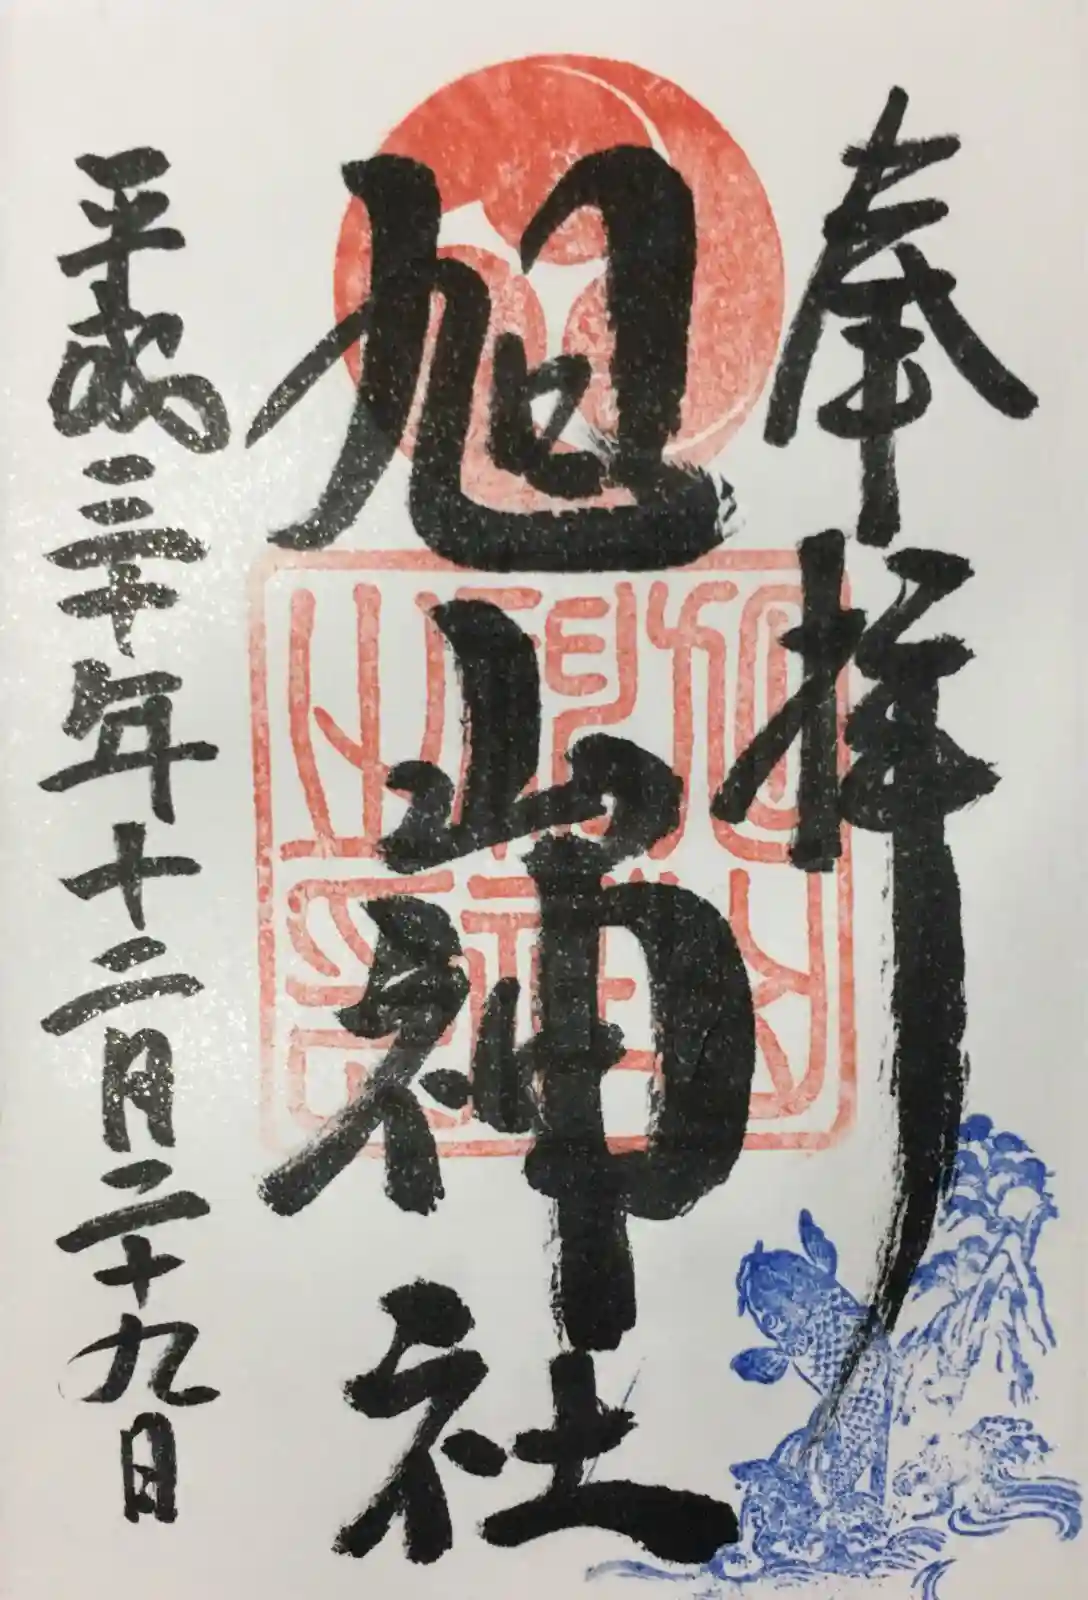 奉拝
旭山神社
平成三十年十二月二十九日